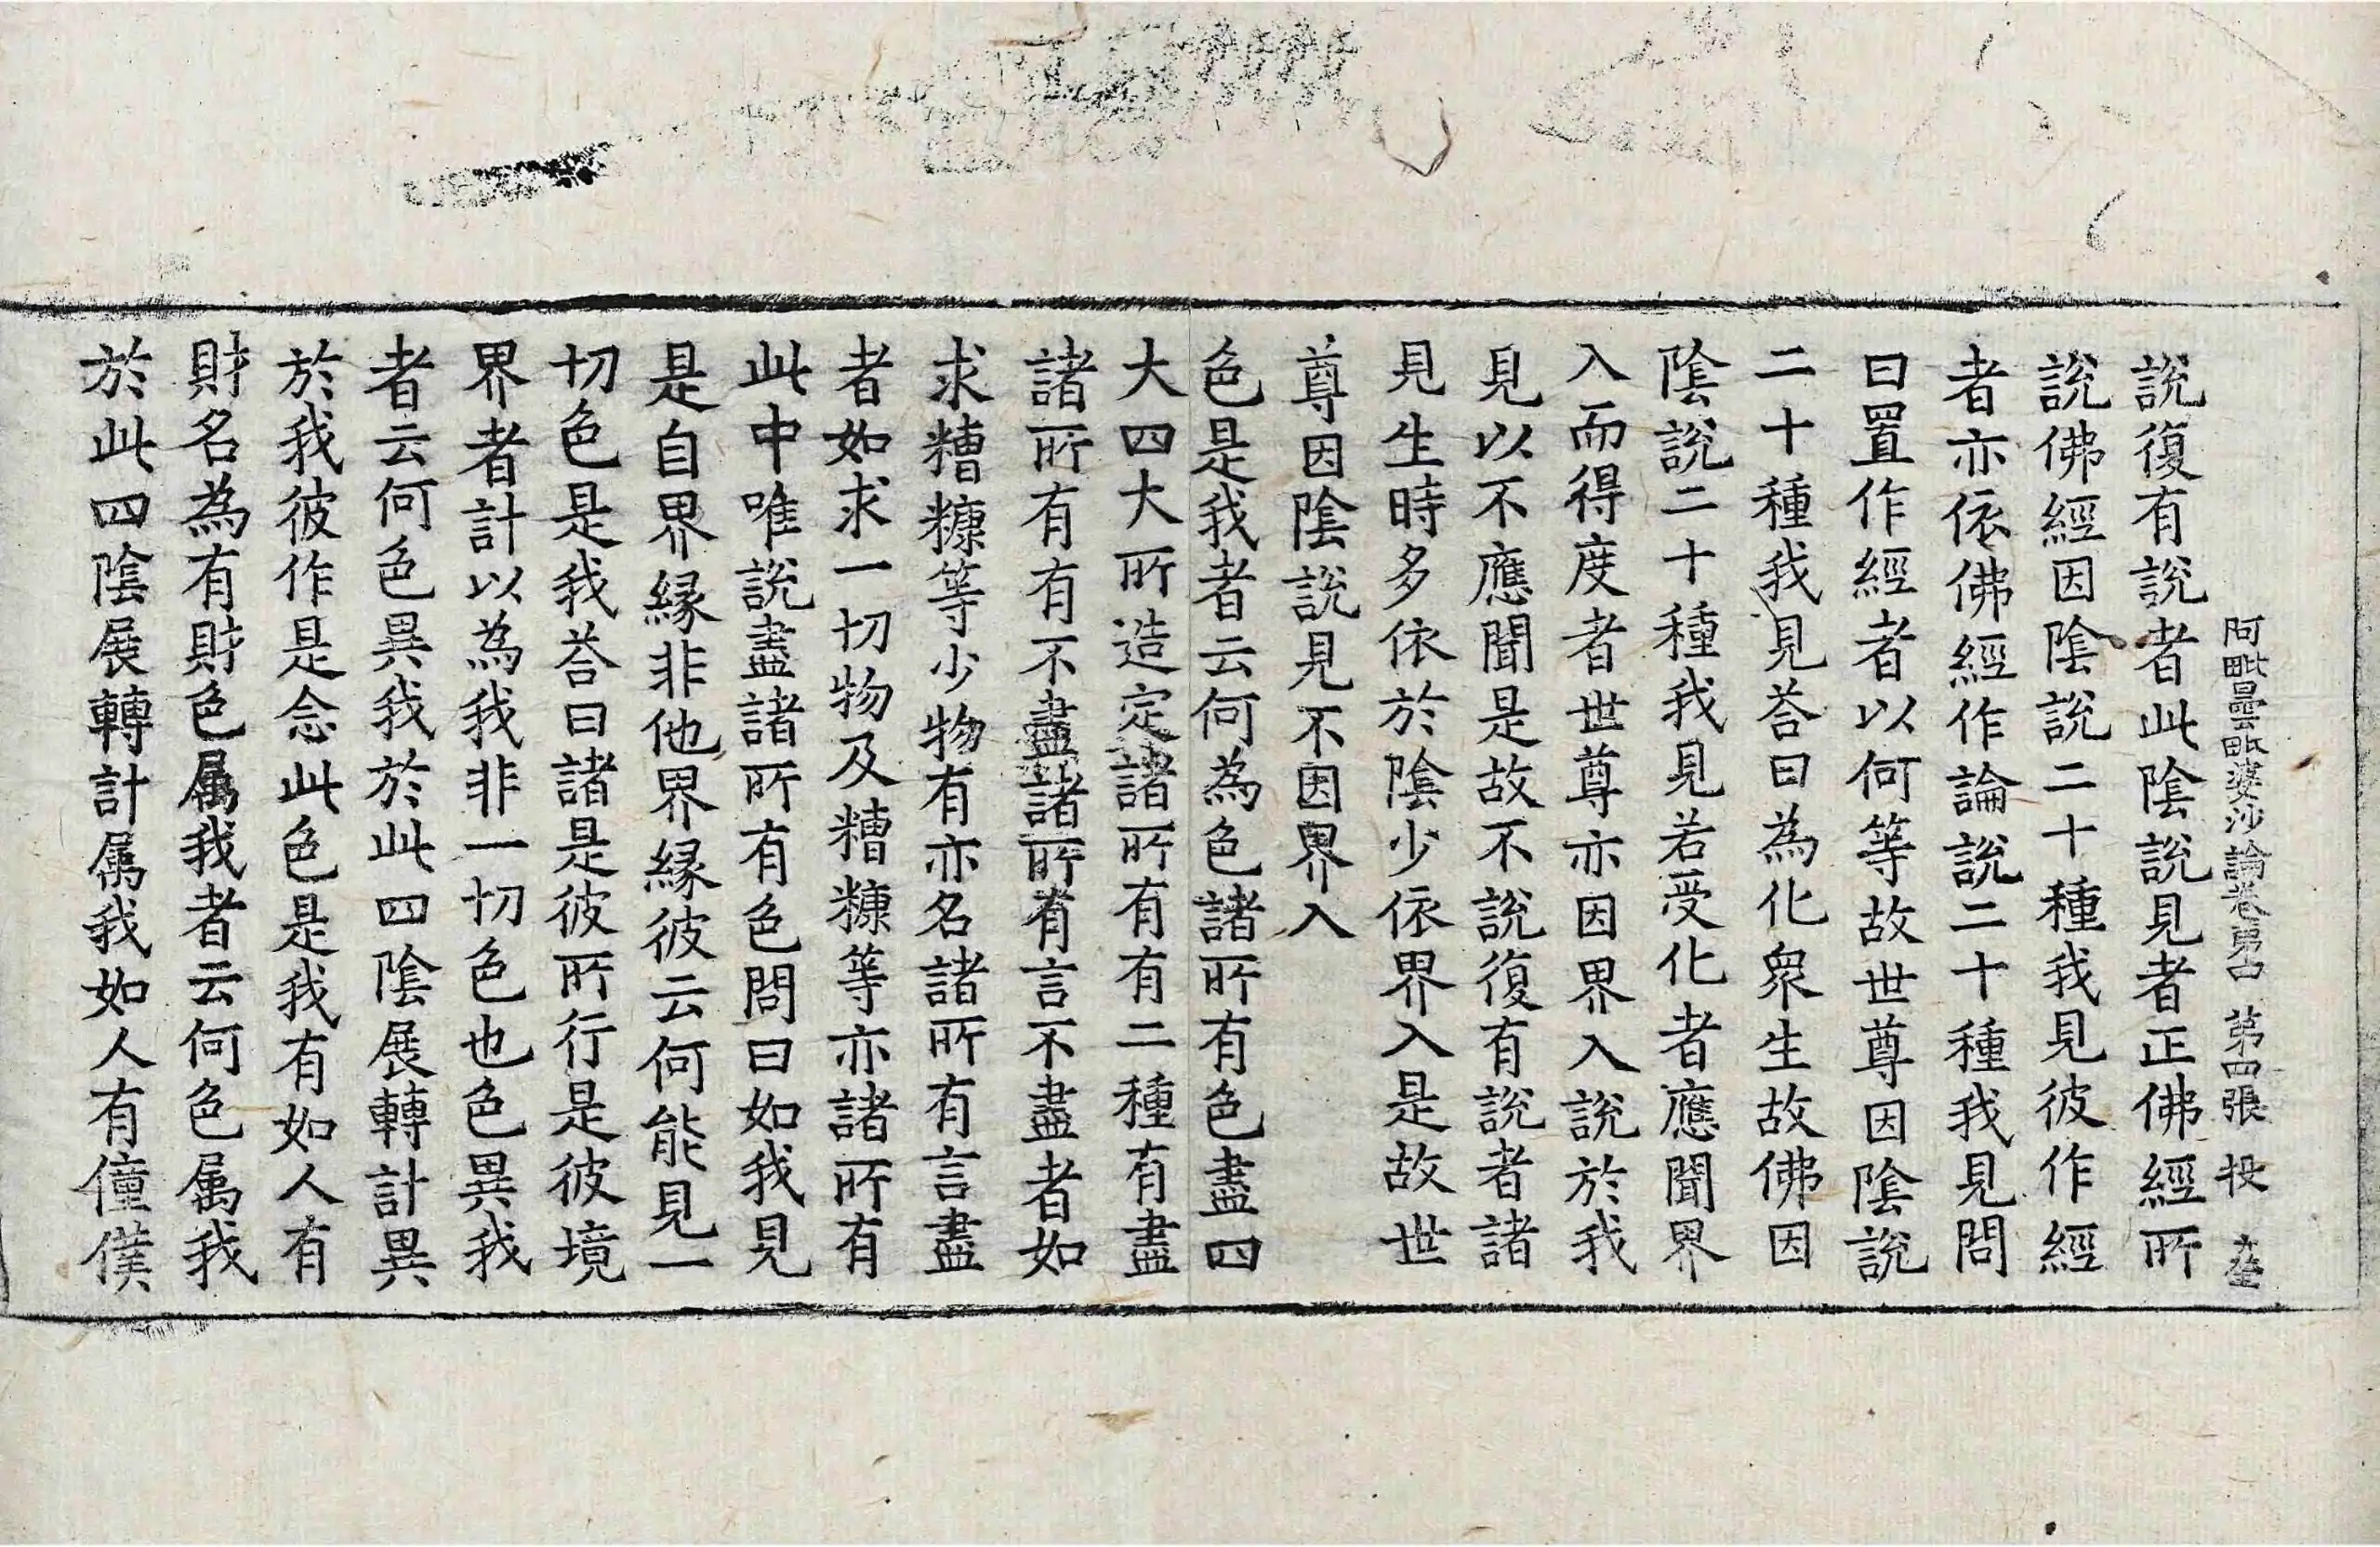 阿毗曇毗婆沙論卷第四 第四張 投
說復有說者此陰說見者正佛經所
說佛經因陰說二十種我見彼作經
者亦依佛經作論說二十種我見問
曰置作經者以何等故世尊因陰說
二十種我見荅曰為化衆生故佛因
陰說二十種我見若受化者應聞界
入而得度者世尊亦因界入說於我
見以不應聞是故不說復有說者諸
見生時多依於陰少依界入是故世
尊因陰說見不因界入
色是我者云何為色諸所有色盡四
大四大所造定諸所有有二種有盡
諸所有有不盡諸所有言不盡者如
求糟糠等少物有亦名諸所有言盡
者如求一切物及糟糠等亦諸所有
此中唯說盡諸所有色問曰如我見
是自界緣非他界緣彼云何能見一
切色是我荅曰諸是彼所行是彼境
界者計以為我非一切色也色異我
者云何色異我於此四陰展轉計異
於我彼作是念此色是我有如人有
財名為有財色属我者云何色属我
於此四陰展轉計属我如人有僮僕